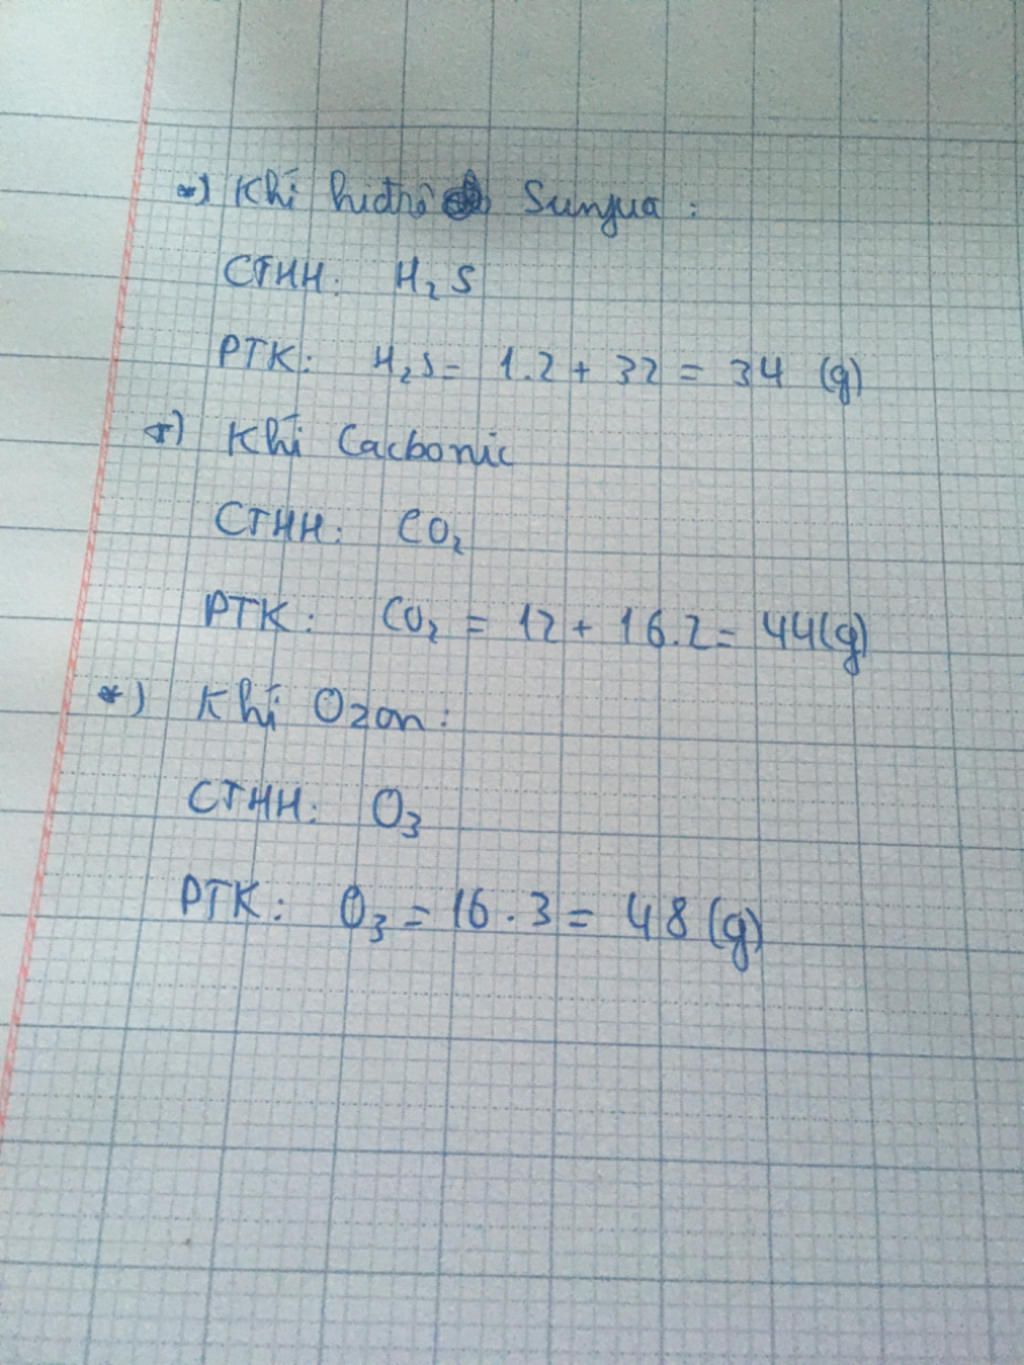 *) Khí hiđrô Sunfua:
CTHH: H₂S
PTK: H₂S = 1.2 + 32 = 34 (g)
*) Khí Cacbonic
CTHH: CO₂
PTK: CO₂ = 12 + 16.2 = 44(g)
*) Khí Ozon:
CTHH: O₃
PTK: O₃ = 16.3 = 48 (g)